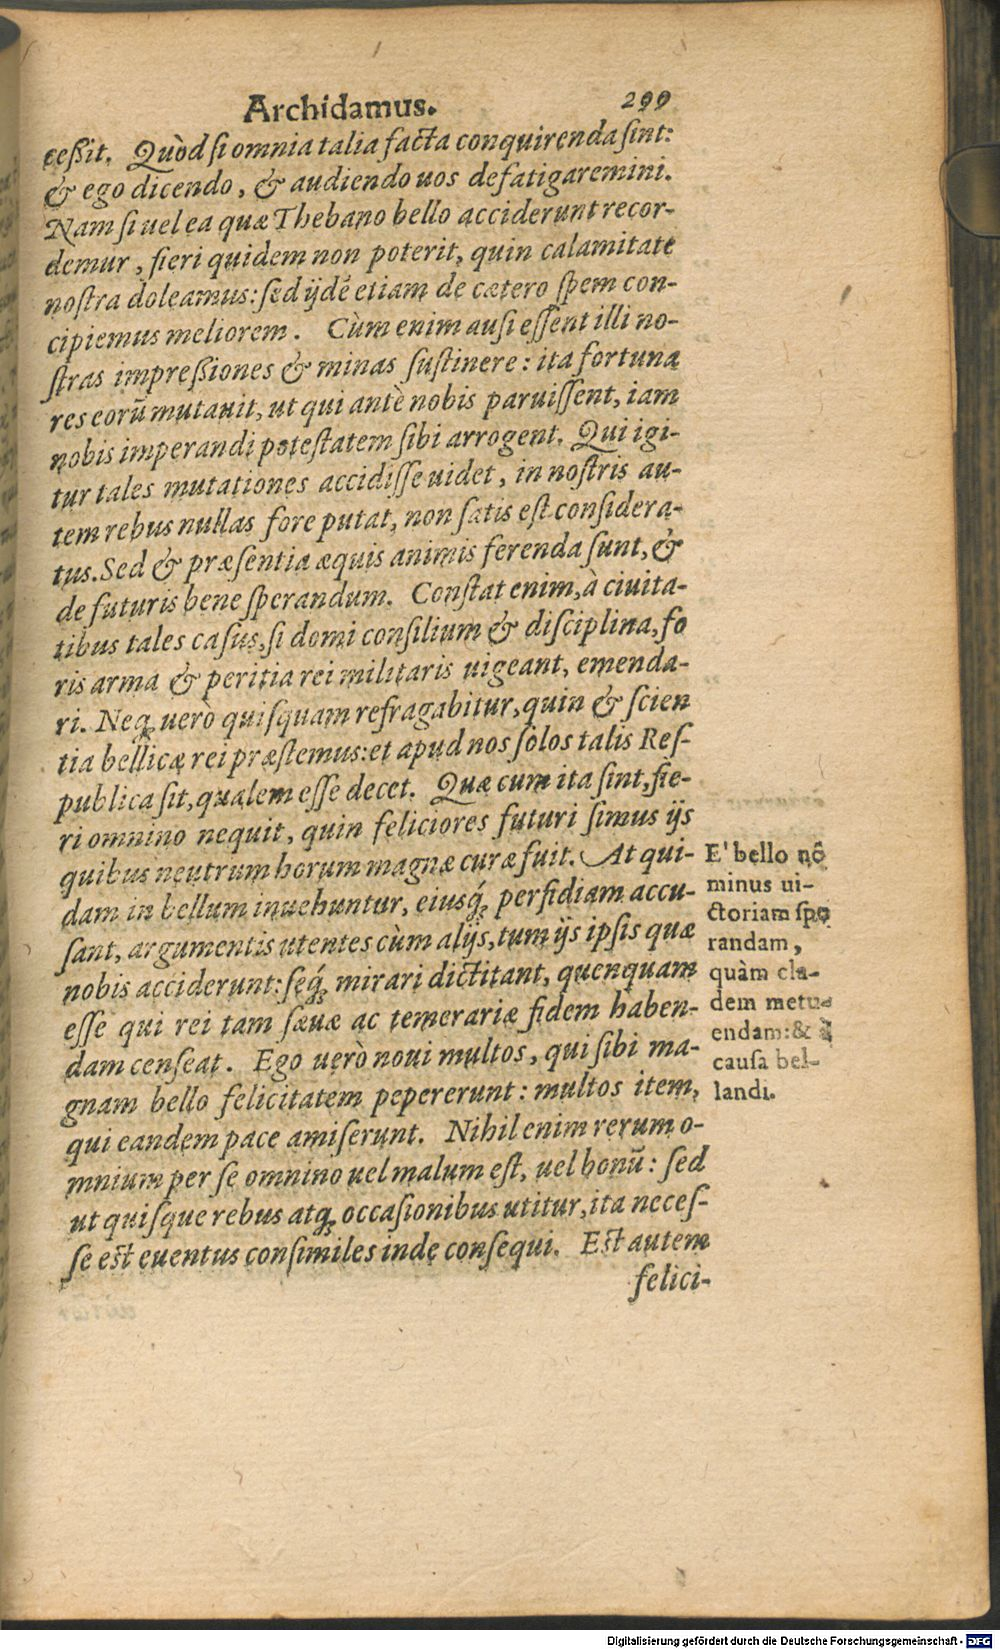 Archidamus. 299
ceßit. Quòd si omnia talia facta conquirenda sint:
& ego dicendo, & audiendo uos defatigaremini.
Nam si uel ea quæ Thebano bello acciderunt recor-
demur, fieri quidem non poterit, quin calamitate
nostra doleamus: sed ijdē etiam de cætero spem con-
cipiemus meliorem. Cùm enim ausi essent illi no-
stras impreßiones & minas sustinere: ita fortuna
res eorū mutauit, ut qui antè nobis paruissent, iam
nobis imperandi potestatem sibi arrogent. Qui igi-
tur tales mutationes accidisse uidet, in nostris au-
tem rebus nullas fore putat, non satis est considera-
tus. Sed & præsentia æquis animis ferenda sunt, &
de futuris bene sperandum. Constat enim, à ciuita-
tibus tales casus, si domi consilium & disciplina, fo
ris arma & peritia rei militaris uigeant, emenda-
ri. Neq; uerò quisquam refragabitur, quin & scien
tia bellicæ rei præstemus: et apud nos solos talis Res-
publica sit, qualem esse decet. Quæ cum ita sint, fie-
ri omnino nequit, quin feliciores futuri simus ijs
quibus neutrum horum magnæ curæ fuit. At qui-
dam in bellum inuehuntur, eiusq́; perfidiam accu-
sant, argumentis utentes cùm alijs, tum ijs ipsis quæ
nobis acciderunt: seq́; mirari dictitant, quenquam
esse qui rei tam sæuæ ac temerariæ fidem haben-
dam censeat. Ego uerò noui multos, qui sibi ma-
gnam bello felicitatem pepererunt: multos item,
qui eandem pace amiserunt. Nihil enim rerum o-
mnium per se omnino uel malum est, uel bonū: sed
ut quisque rebus atq; occasionibus utitur, ita neces-
se est euentus consimiles inde consequi. Est autem
felici-
E' bello nō
minus ui-
ctoriam spe
randam,
quàm cla-
dem metu-
endam: & à
causa bel-
landi.
Digitalisierung gefördert durch die Deutsche Forschungsgemeinschaft - DFG